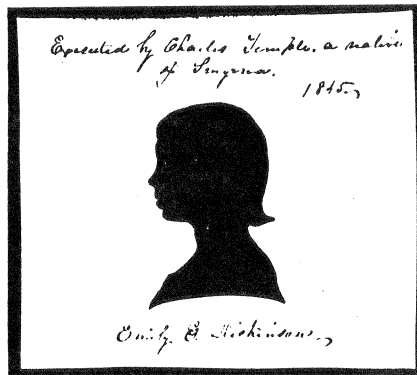 Executed by Charles Temple, a native
of Smyrna.
1845.
Emily E. Dickinson.